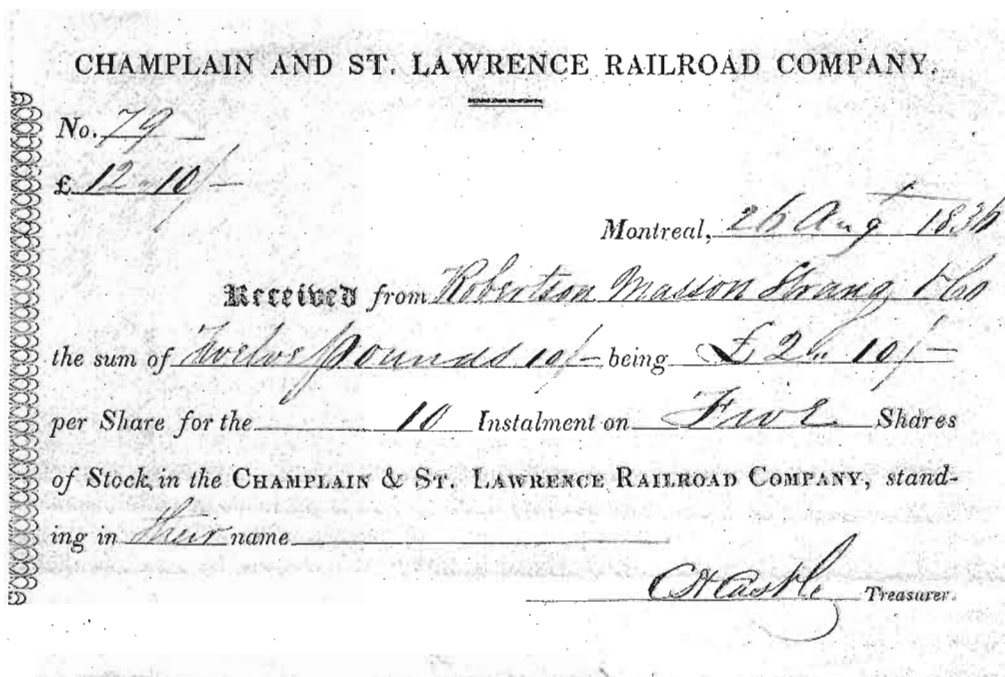 CHAMPLAIN AND ST. LAWRENCE RAILROAD COMPANY.
No. 79 —
£ 12-10/-
Montreal, 26 Augt 1836
Received from Robertson Masson Strang & Co
the sum of Twelve pounds 10/- being £2 " 10/-
per Share for the 10 Instalment on Five Shares
of Stock, in the CHAMPLAIN & ST. LAWRENCE RAILROAD COMPANY, stand-
ing in their name
C H Castle Treasurer.